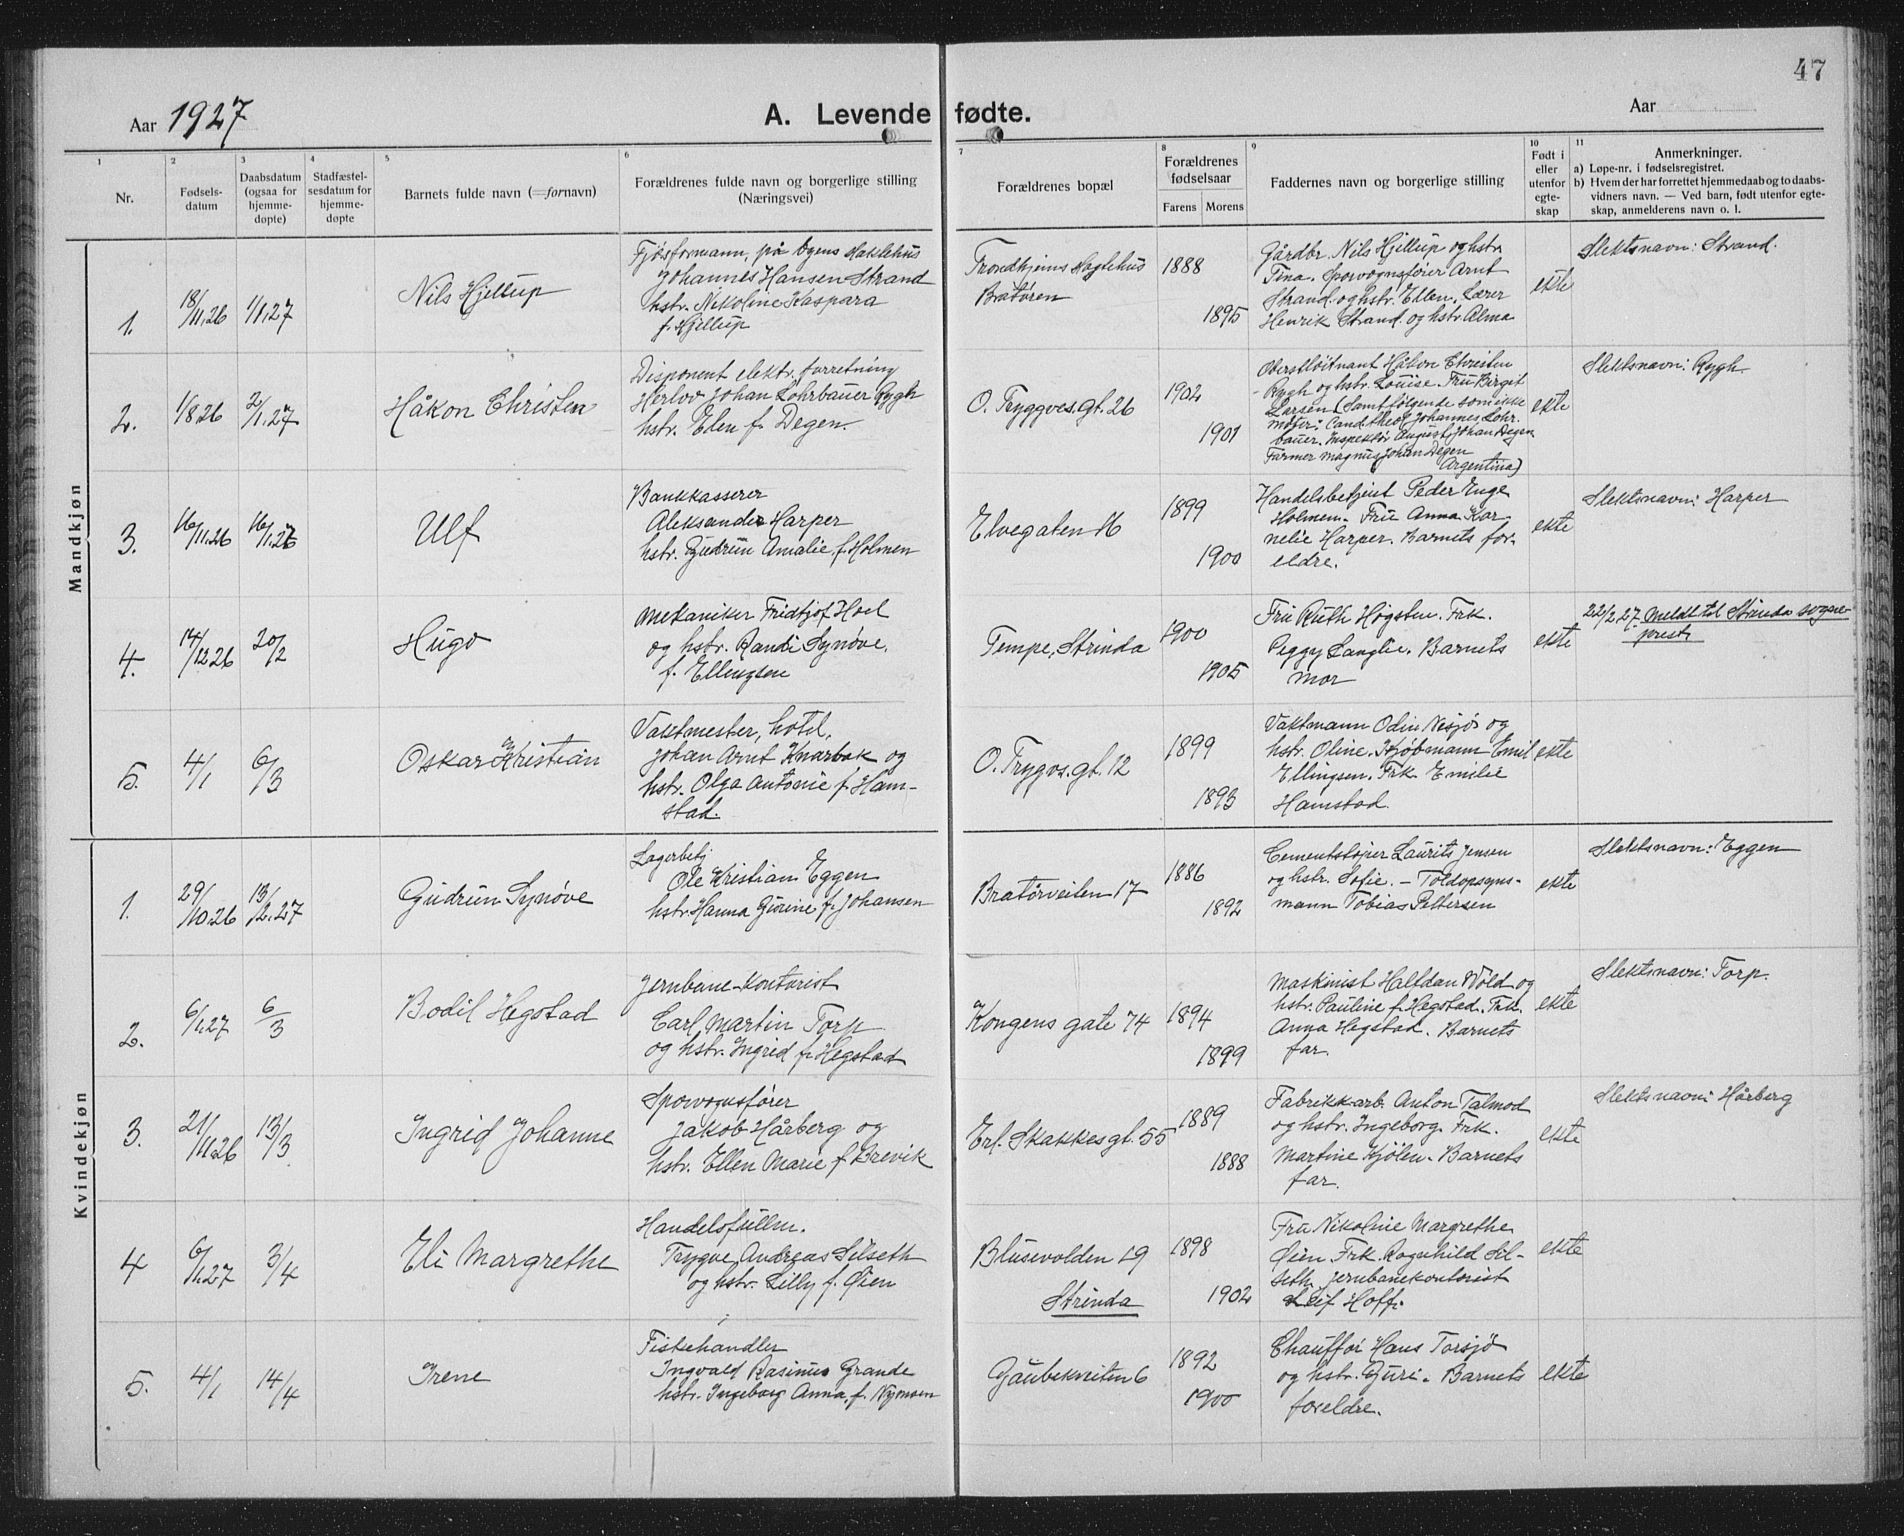 47
Aar 1927
A. Levende fødte.
Aar
1
2
3
4
5
6
7
8
9
10
11
Nr.
Fødsels-
datum
Daabsdatum
(ogsaa for
hjemme-
døpte)
Stadfæstel-
sesdatum for
hjemme-
døpte
Barnets fulde navn (=fornavn)
Forældrenes fulde navn og borgerlige stilling
(Næringsvei)
Forældrenes bopæl
Forældrenes
fødselsaar
Farens
Morens
Faddernes navn og borgerlige stilling
Født i
eller
utenfor
egte-
skap
Anmerkninger.
a) Løpe-nr. i fødselsregistret.
b) Hvem der har forrettet hjemmedaab og to daabs-
vidners navn. — Ved barn, født utenfor egte-
skap, anmelderens navn o. l.
Mandkjøn
1.
18/11.26
1/1.27
Nils Hjellup
Fjøsformann, på byens
Johannes Hansen Strand
hstr. Nikoline Kaspara
f. Hjellup
Trondhjems
Bratøren
1888
1895
Gårdbr. Nils Hjellup og hstr.
Tina. Sporvognsfører Arnt
Strand og hstr. Ellen. Lærer
Henrik Strand og hstr Alma
ekte
Slektsnavn: Strand.
2.
1/8 26
2/1.27
Håkon Christen
Disponent elektr. forretning
Johan Lohrbauer Rygh
hstr. Elen f. Degen.
O. Tryggves. gt. 26
1902
1901
Oberstløitnant Håkon Christen
Rygh og hstr. Louise. Fru Birgit
Larsen (Samt følgende som ikke
møter: Cand. theol. Johannes Lohr-
bauer. Inspektør August Johan Degen
Farmer Magnus Johan Degen
Argentina)
ekte
Slektsnavn: Rygh
3.
16/11.26
16/1.26
Ulf
Bankkasserer
Aleksander Harper
hstr. Gudrun Amalie f. Holmen
Elvegaten 16
1899
1900
Handelsbetjent Peder Enge
Holmen. Fru Anna Kor
nelie Harper. Barnets for-
eldre.
ekte
Slektsnavn: Harper
4.
14/12 26
20/2
Hugo
Mekaniker Fridtjof Hoel
og hstr. Randi Synøve.
f. Ellingsen
Tempe, Strinda
1900
1905
Fru Ruth Høgsten. Frk.
Peggy Langlie. Barnets
mor
ekte
22/2.27. meldt til Strinda sogne-
prest
5.
4/1
6/3
Oskar Kristian
Vaktmester, hotel,
Johan Arnt Knarbak og
hstr. Olga Antonie f. Ham-
stad.
O. Trygvs. gt. 12
1899
1893
Vaktmann Odin Nesjø og
hstr. Oline. Kjøbmann Emil
Ellingsen. Frk. Emilie
Hamstad.
ekte
Kvindekjøn
1.
29/10.26
13/2.27
Gudrun Synøve
Lagerbetj
Ole Kristian Eggen
hstr. Hanna Gurine f. Johansen
Bratørveiten 17
1886
1892
Cementstøper Laurits Jensen
og hstr. Sofie. – Toldopsyns-
mann Tobias Pettersen
ekte
Slektsnavn: Eggen
2.
6/1.27
6/3
Bodil Hegstad
Jernbane-kontorist
Carl Martin Torp
og hstr. Ingrid f. Hegstad
Kongens gate 74
1894
1899
Maskinist Halfdan Wold og
hstr. Pauline f. Hegstad. Frk.
Anna Hegstad. Barnets
far.
ekte
Slektsnavn: Torp.
3.
21/11.26
13/3
Ingrid Johanne
Sporvognsfører
Jakob Hårberg og
hstr. Ellen Marie f. Brevik
Erl. Skakkes gt. 55
1889
1888
Fabrikkarb. Anton Talmod
og hstr. Ingeborg. Frk.
Martine Kjølen. Barnets
far.
ekte
Slektsnavn: Hårberg
4
6/1.27
3/4
Eli Margrethe
Handelsfullm.
Trygve Andreas Silseth
og hstr. Lilly f. Øien
Blusevolden 19
Strinda
1898
1902
Fru Nikoline Margrethe
Øien Frk. Ragnhild Sil-
seth. Jernbanekontorist
Leif Hoff.
ekte
5.
4/1
14/4
Irene
Fiskehandler
Ingvald Rasinus Grande
hstr. Ingeborg Anna f. Nymoen
Gaubekveiten 6
1892
1900
Chauffør Hans Torsjø
og hstr. Guri. Barnets
foreldre.
ekte